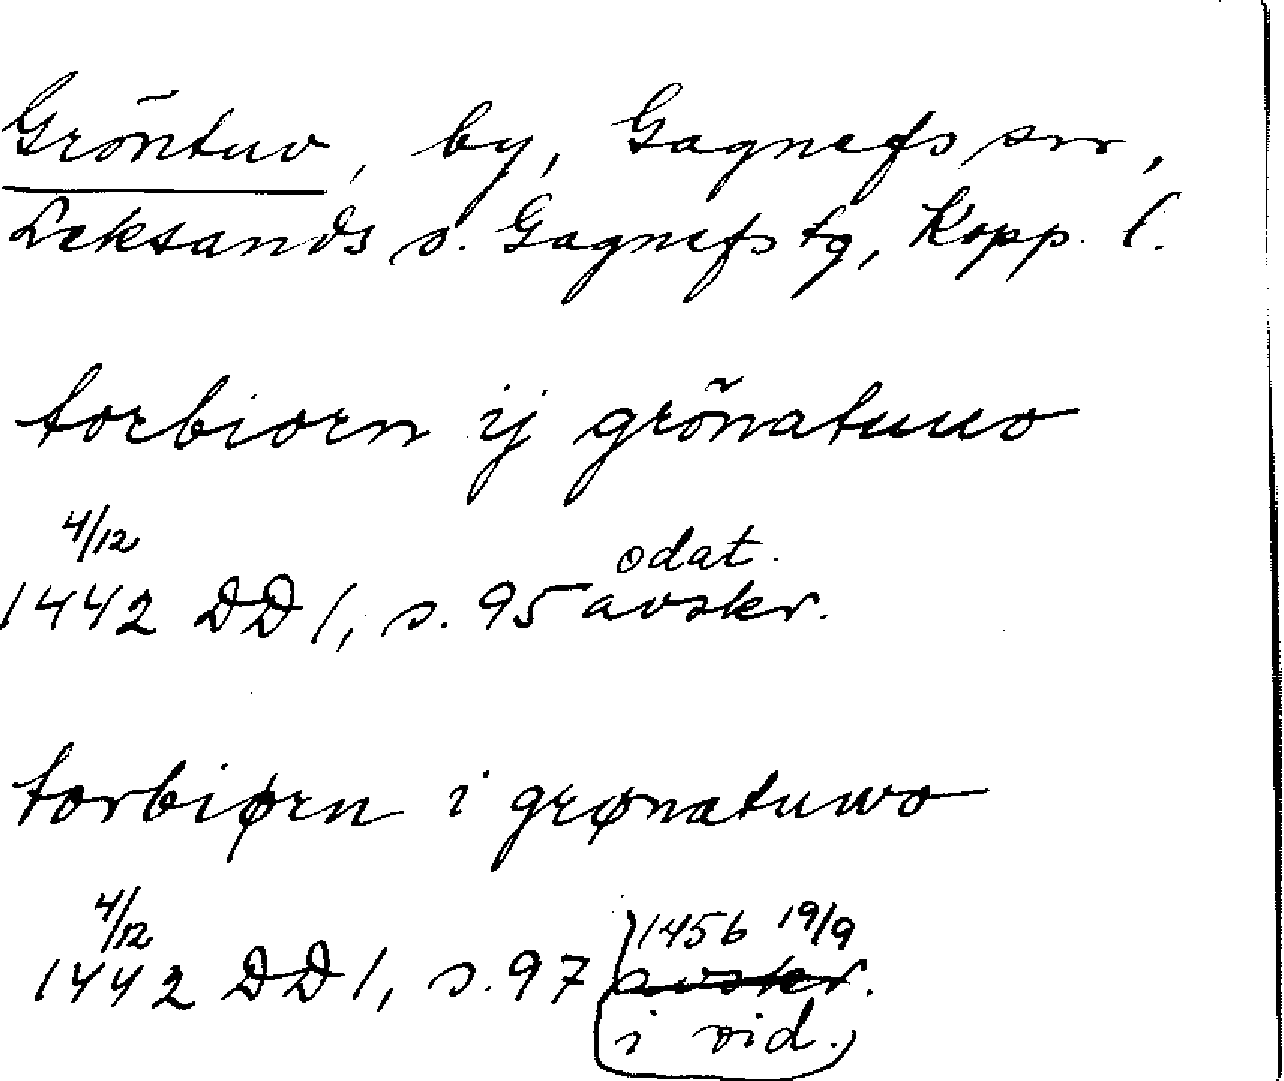 Gröntuv, by, Gagnefs sn,
Leksands o. Gagnefs tg, Kopp. l.
torbiorn ij grönatuuo
4/12
odat.
1442 DD 1, s. 95 avskr.
torbiørn i grønatuwo
4/12
(1456 19/9
1442 DD 1, s. 97 avskr.
i vid.)